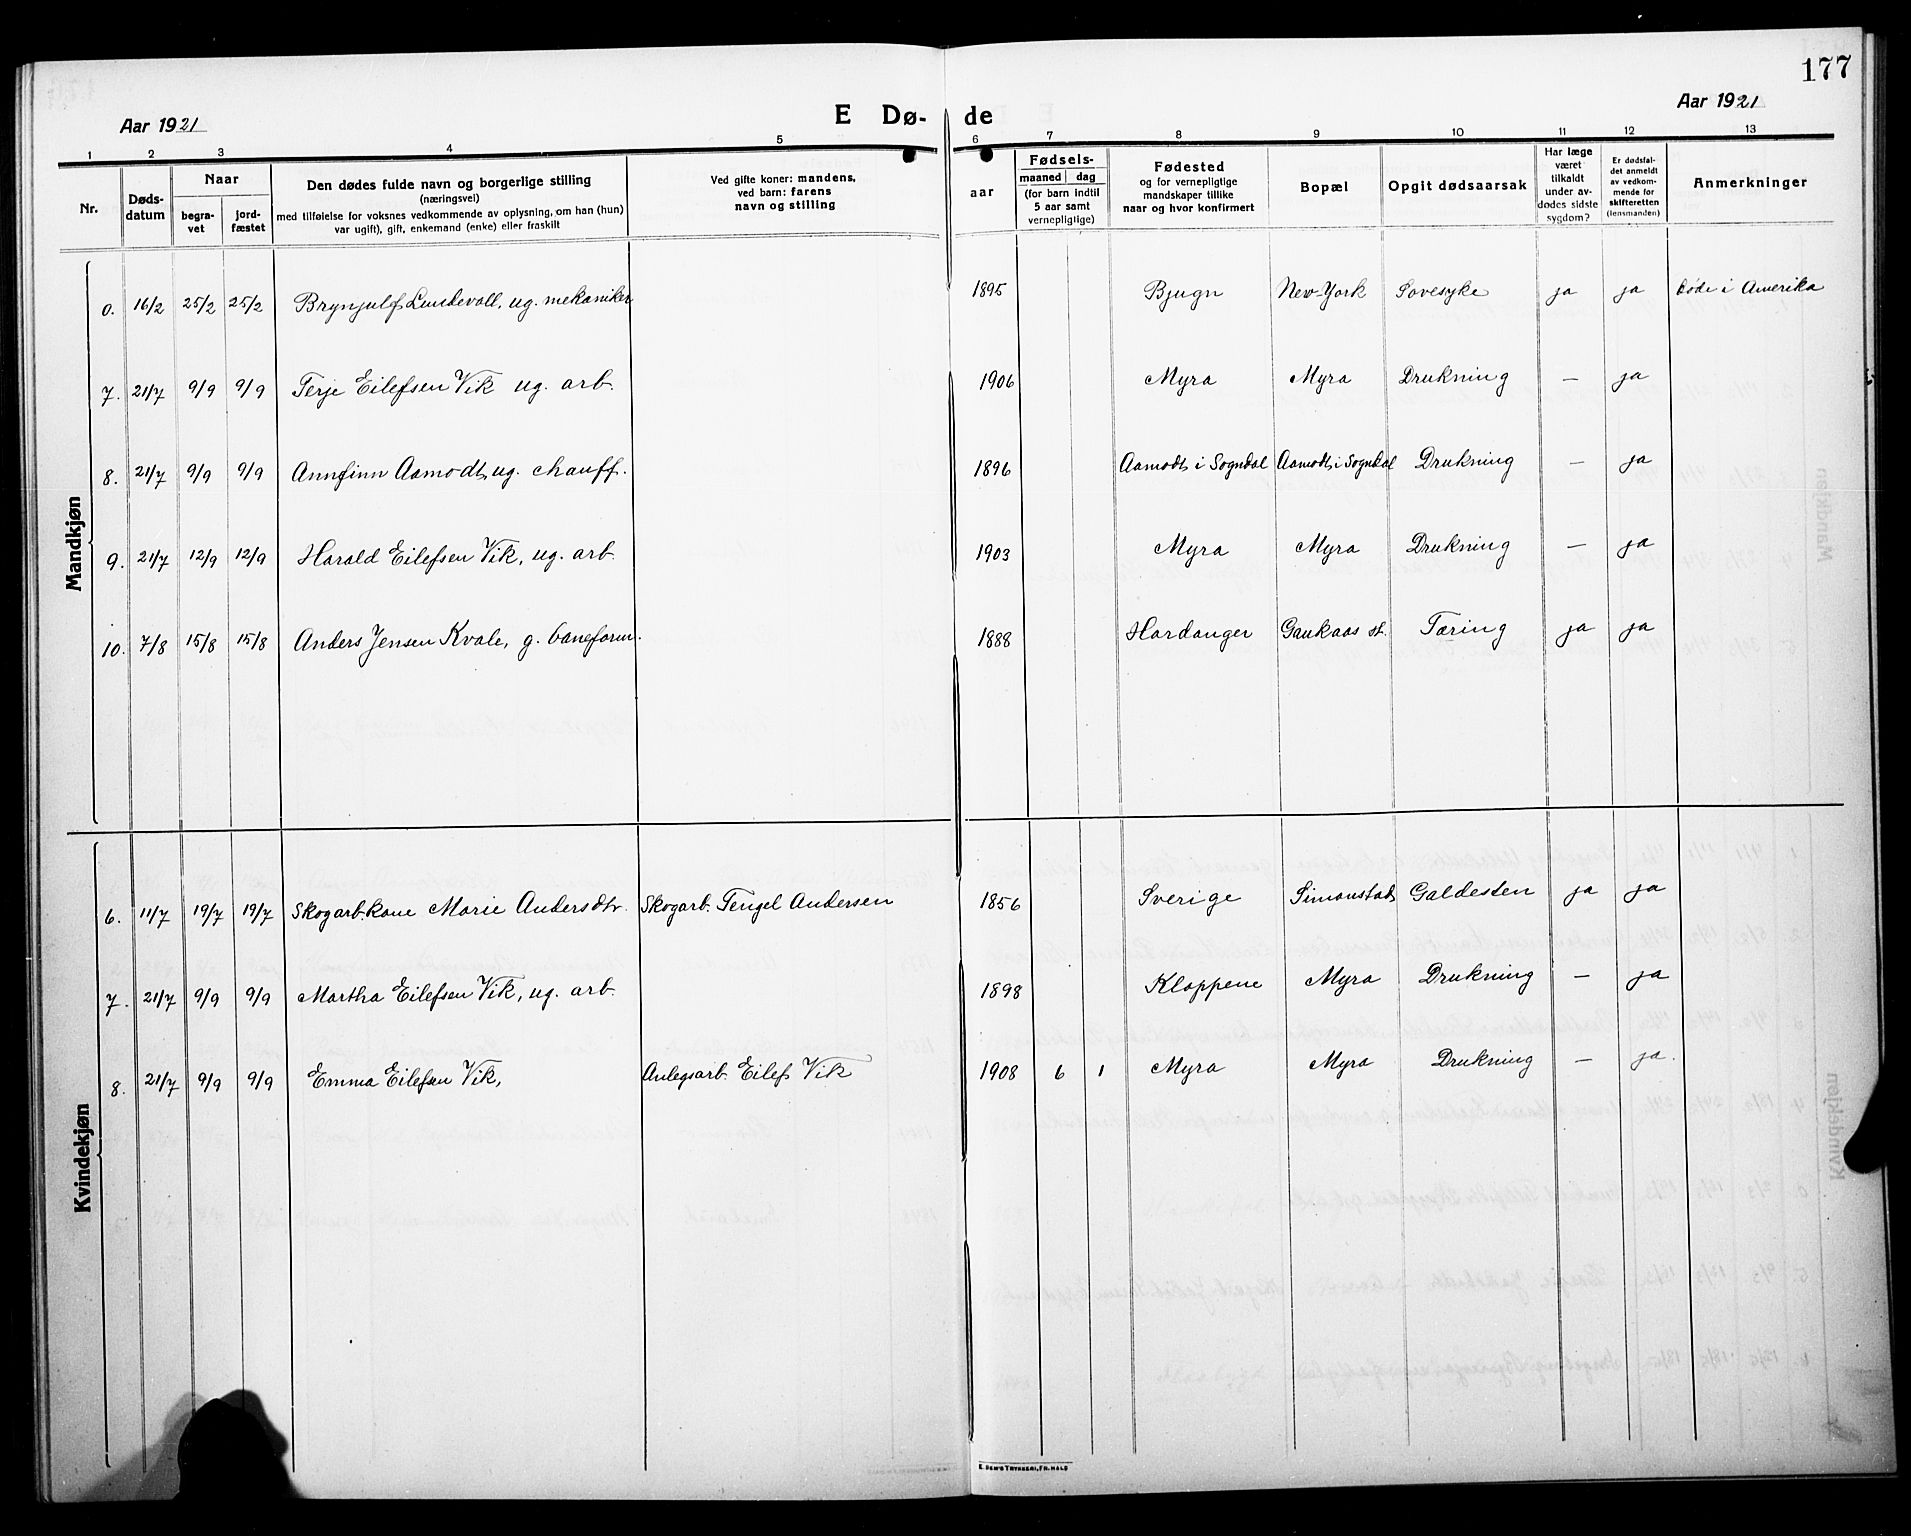 177
Aar 1921
E Dø- de
Aar 1921
1 2 3 4 5 6 7 8 9 10 11 12 13
Nr.
Døds-
datum
Naar
begra-
vet
jord-
fæstet
Den dødes fulde navn og borgerlige stilling
(næringsvei)
med tilføielse for voksnes vedkommende av oplysning, om han (hun)
var ugift), gift, enkemand (enke) eller fraskilt
Ved gifte koner: mandens,
ved barn: farens
navn og stilling
aar
Fødsels-
maaned dag
(for barn indtil
5 aar samt
vernepligtige)
Fødested
og for vernepligtige
mandskaper tillike
naar og hvor konfirmert
Bopæl
Opgit dødsaarsak
Har læge
været
tilkaldt
under av-
dødes sidste
sygdom?
Er dødsfal-
det anmeldt
av vedkom-
mende for
skifteretten
(lensmanden)
Anmerkninger
Mandkjøn
0. 16/2 25/2 25/2 Brynjulf Lundevoll, ug. mekaniker 1895 Bjugn New-York Sovesyke ja ja døde i Amerika
7. 21/7 9/9 9/9 Terje Eilefsen Vik ug. arb. 1906 Myra Myra Drukning — ja
8. 21/7 9/9 9/9 Annfinn Aamodt, ug. chauff. 1896 Aamodt i Sogndal Aamodt i Sogndal Drukning — ja
9. 21/7 12/9 12/9 Harald Eilefsen Vik, ug. arb. 1903 Myra Myra Drukning — ja
10. 7/8 15/8 15/8 Anders Jensen Kvale, g. baneform. 1888 Hardanger Gaukaas st. Tæring ja ja
Kvindekjøn
6. 11/7 19/7 19/7 Skogarb.kone Marie Andersdtr. Skogarb. Tengel Andersen 1856 Sverige Simonstad Galdesten ja ja
7. 21/7 9/9 9/9 Martha Eilefsen Vik, ug. arb. 1898 Kloppene Myra Drukning — ja
8. 21/7 9/9 9/9 Emma Eilefsen Vik, Anlegsarb. Eilef Vik 1908 6 1 Myra Myra Drukning — ja.
E. SEM'S TRYKKERI, FR.HALD